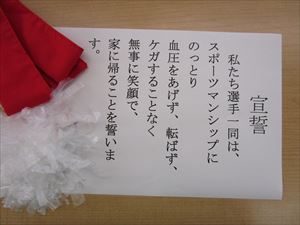 宣誓
私たち選手一同は、
スポーツマンシップに
のっとり
血圧をあげず、転ばず、
ケガすることなく
無事に笑顔で、
家に帰ることを誓いま
す。